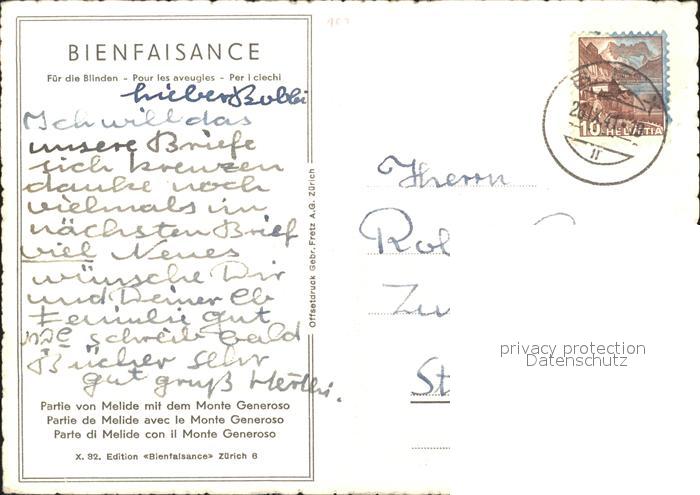 BIENFAISANCE
Für die Blinden – Pour les aveugles – Per i ciechi
Lieber Bobbi
Ich will das
unsere Briefe
sich kreuzen
danke noch
vielmals im
nächsten Brief
viel Neues
wünsche Dir
und Deiner lb
Familie gut
schreib bald
Bücher sehr
gut gruß
Partie von Melide mit dem Monte Generoso
Partie de Melide avec le Monte Generoso
Parte di Melide con il Monte Generoso
X. 32. Edition «Bienfaisance» Zürich 6
Offsetdruck Gebr. Fretz A.G. Zürich
10 HELVETIA
Herrn
Ro
Zu
St
privacy protection
Datenschutz